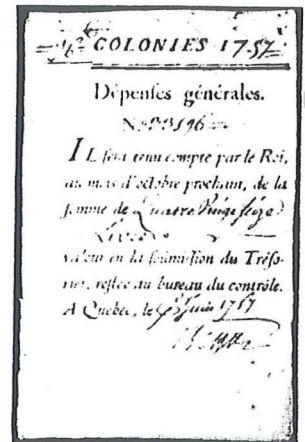 96lt COLONIES 1757.
Dépenses générales.
No
IL sera tenu compte par le Roi,
au mois d'octobre prochain, de la
somme de Quatre Vingt seize
Livres
valeur en la soumission du Tréso-
rier, restée au bureau du contrôle.
A Quebec, le Juin 1757